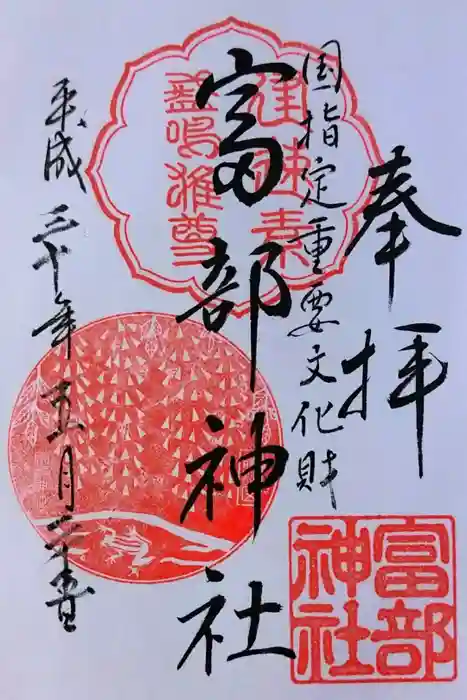 奉拝
国指定重要文化財
建速素
盞鳴雅尊
富部神社
平成三十年五月二十
富部
神社